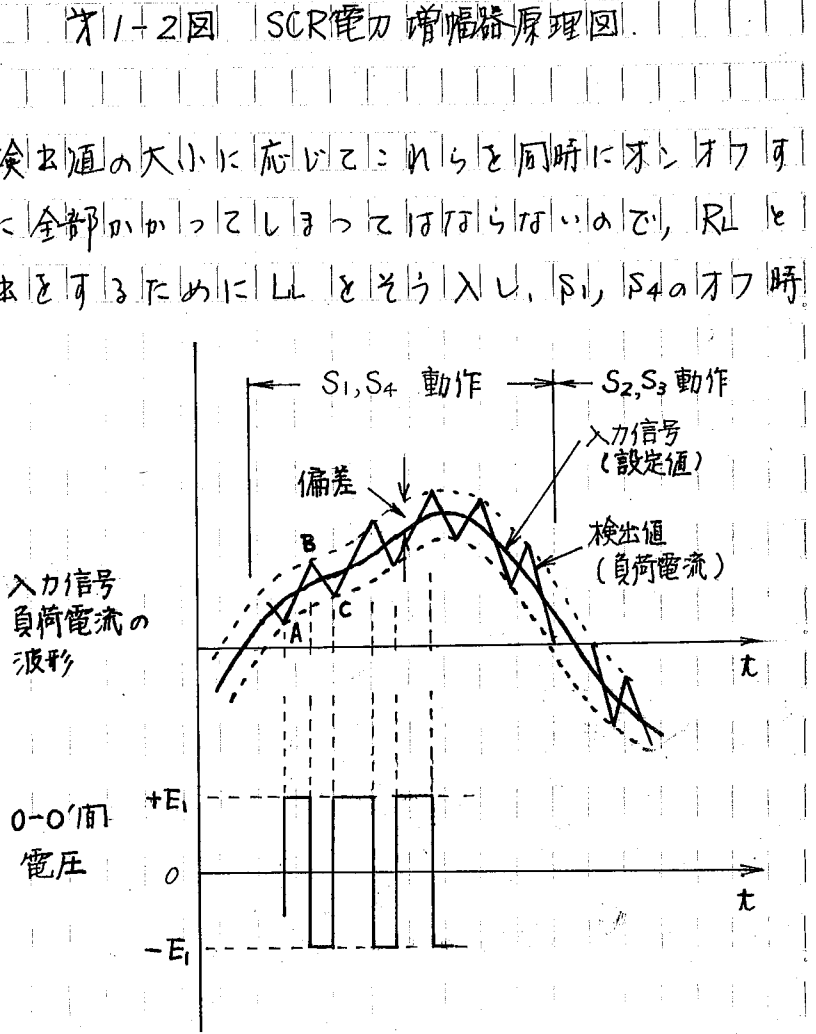 第1-2図 SCR電力増幅器原理図.
検出値の大小に応じてこれらを同時にオンオフす
に全部かかってしまってはならないので, RLと
出をするためにLLをそう入し, S1, S4のオフ時
S1,S4 動作
S2,S3動作
入力信号
(設定値)
偏差
検出値
(負荷電流)
B
A
C
入力信号
負荷電流の
波形
t
+E1
0-0'間
電圧
0
t
-E1